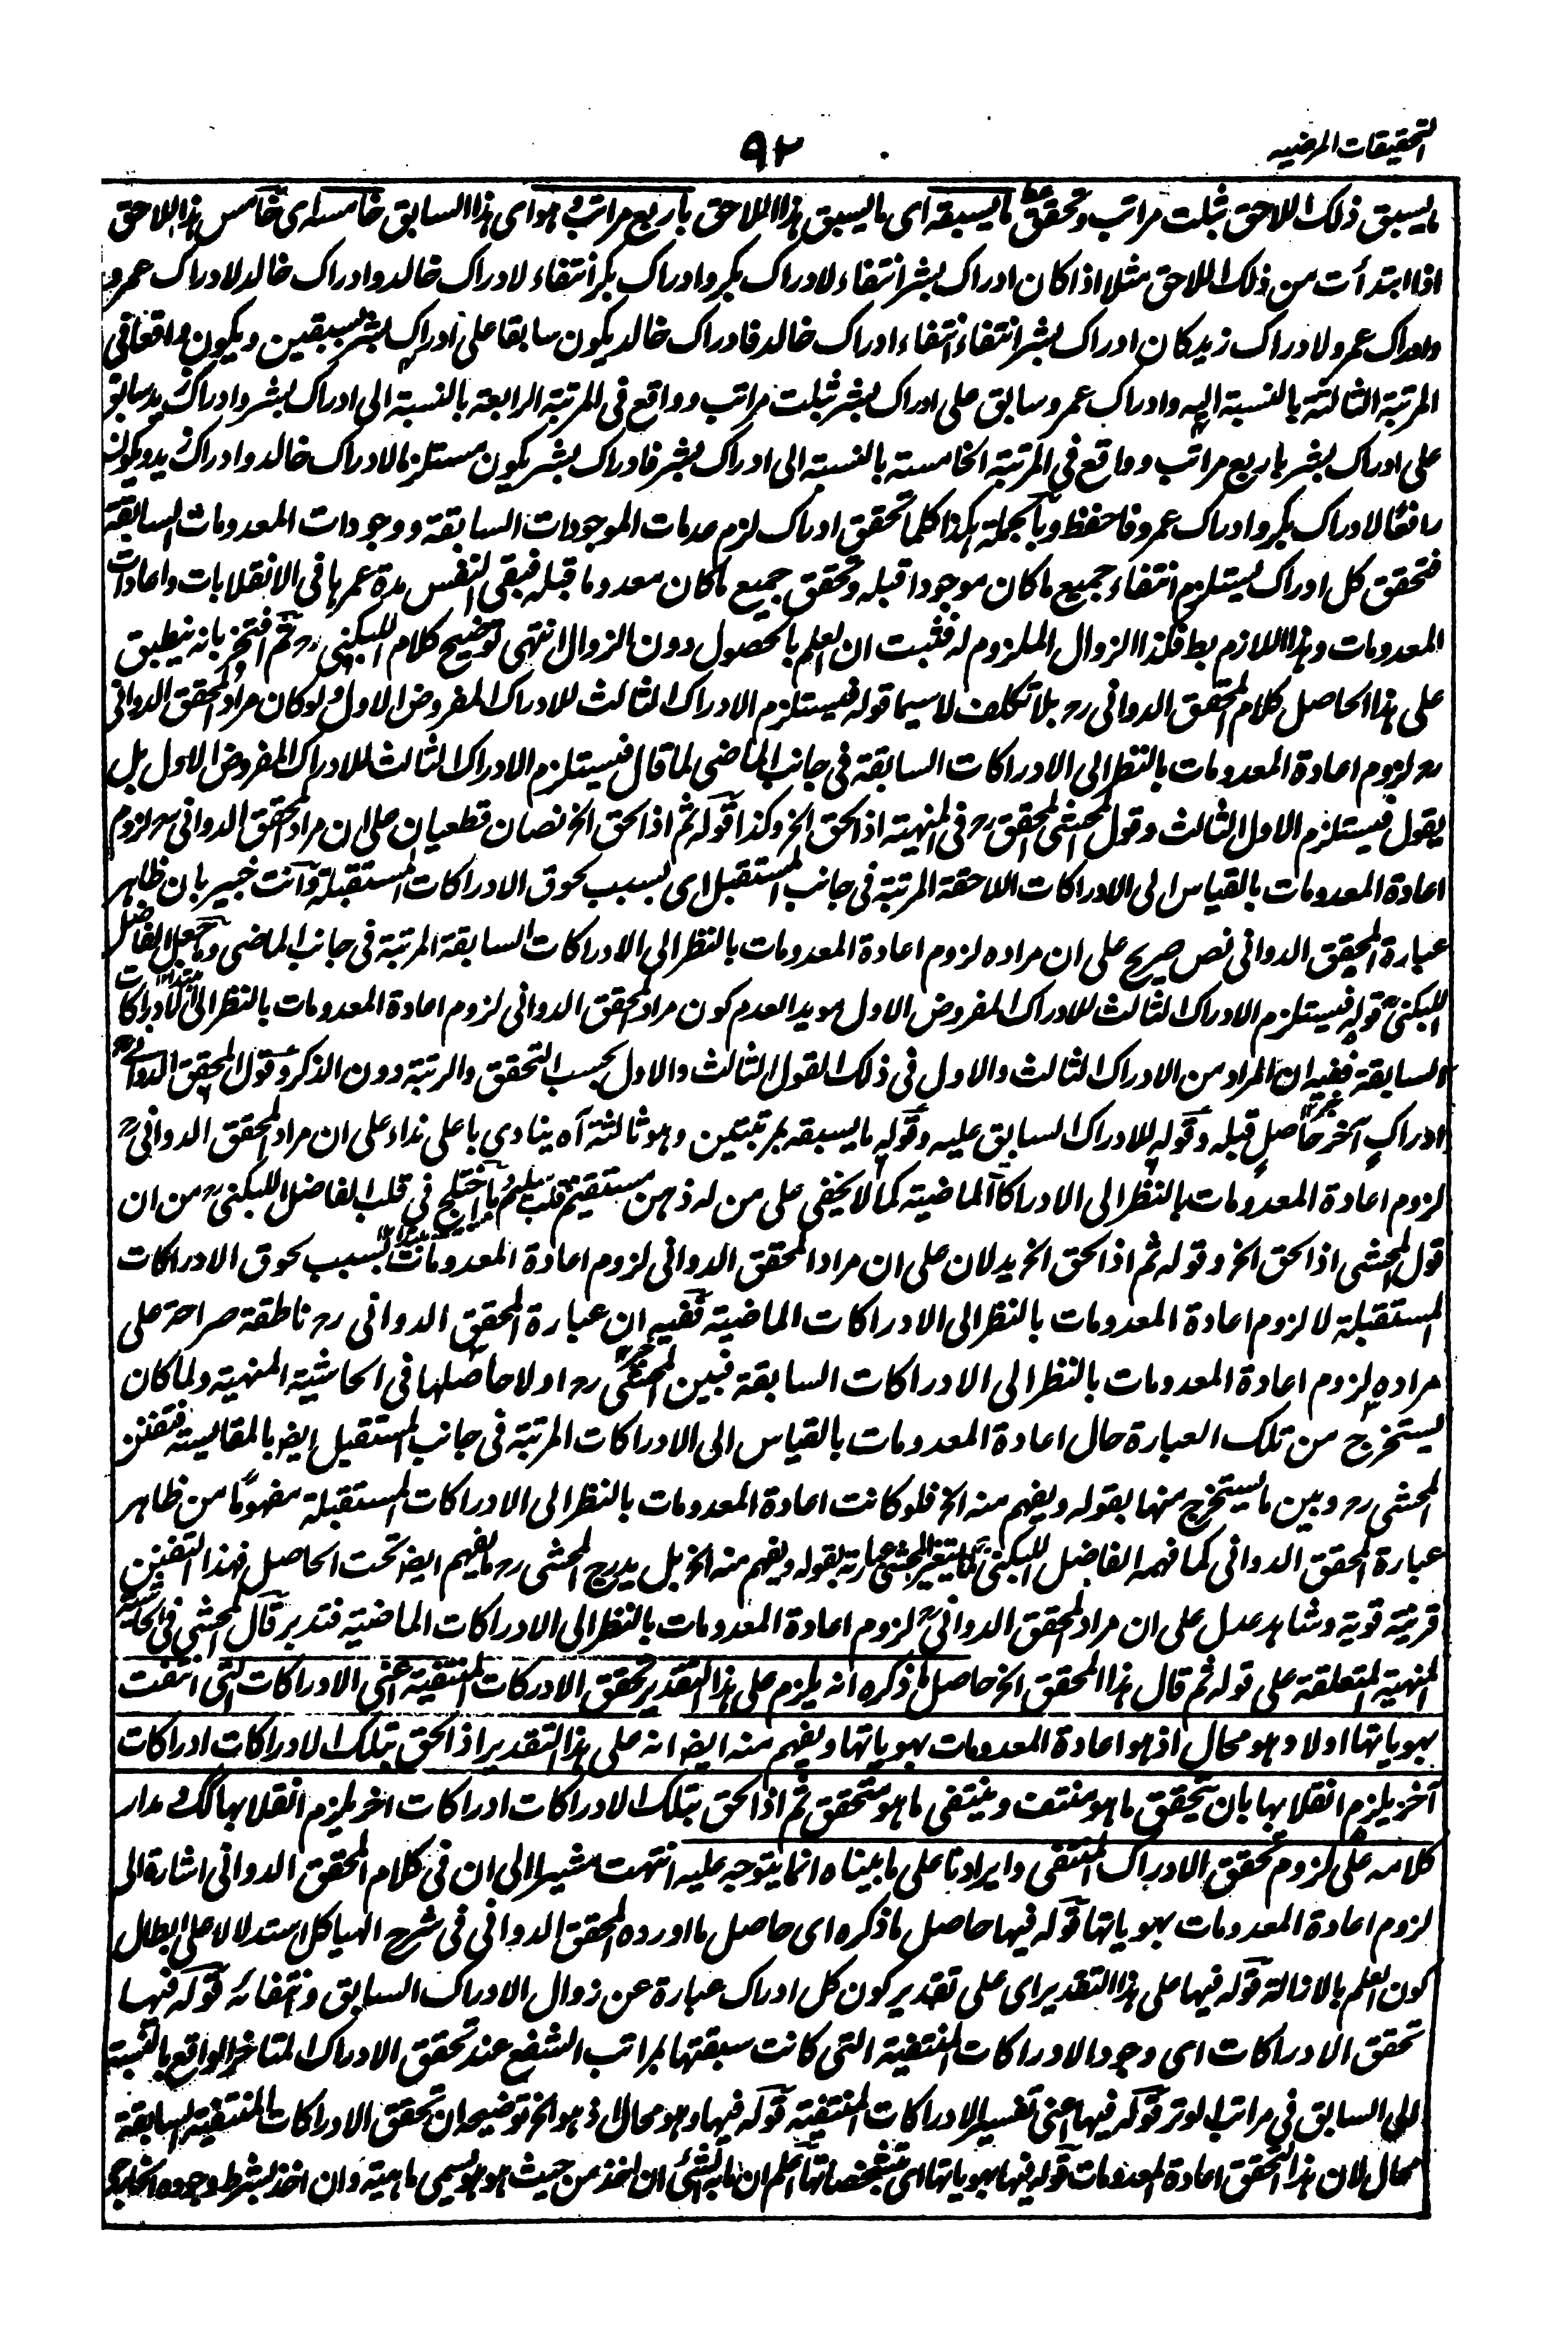 التحقيقات المرضيه
٩٢
ما يسبق ذلك اللاحق بثلث مراتب وتحقق ما يسبقه اى ما يسبق هذا اللاحق باربع مراتب وهو اى هذا السابق خامسه اى خامس هذا اللاحق
اذا ابتدأت من ذلك اللاحق مثلا اذا كان ادراك بشر انتفاء لادراك بكر وادراك بكر انتفاء لادراك خالد وادراك خالد لادراك عمرو
وادراك عمرو لادراك زيد كان ادراك بشر انتفاء انتفاء ادراك خالد فادراك خالد يكون سابقا على ادراك بشر بسبقين ويكون واقعا فى
المرتبة الثالثة بالنسبة اليه وادراك عمرو سابق على ادراك بشر بثلث مراتب وواقع فى المرتبة الرابعة بالنسبة الى ادراك بشر وادراك زيد سابق
على ادراك بشر باربع مراتب وواقع فى المرتبة الخامسة بالنسبة الى ادراك بشر فادراك بشر يكون مستلزما لادراك خالد وادراك زيد ويكون
رافعا لادراك بكر وادراك عمرو فاحفظ وبالجملة هكذا كلما تحقق ادراك لزم عدمات الموجودات السابقة ووجودات المعدومات السابقة
فتحقق كل ادراك يستلزم انتفاء جميع ما كان موجودا قبله وتحقق جميع ما كان معدوما قبله فبقى النفس مدة عمرها فى الانقلابات واعادات
المعدومات وهذا اللازم بط فكذا الزوال الملزوم له فثبت ان العلم بالحصول دون الزوال انتهى توضيح كلام اللبكنى رح ثم افتخر بانه ينطبق
على هذا الحاصل كلام المحقق الدوانى رح بلا تكلف لاسيما قوله فيستلزم الادراك الثالث للادراك المفروض الاول ولو كان مراد المحقق الدوانى
رح لزوم اعادة المعدومات بالنظر الى الادراكات السابقة فى جانب الماضى لما قال فيستلزم الادراك الثالث للادراك المفروض الاول بل
يقول فيستلزم الاول الثالث وقول المحشى المحقق رح فى المنهية اذا لحق الخ وكذا قوله ثم اذا لحق الخ نصان قطعيان على ان مراد المحقق الدوانى رح لزوم
اعادة المعدومات بالقياس الى الادراكات اللاحقة المرتبة فى جانب المستقبل اى بسبب لحوق الادراكات المستقبلة وانت خبير بان ظاهر
عبارة المحقق الدوانى نص صريح على ان مراده لزوم اعادة المعدومات بالنظر الى الادراكات السابقة المرتبة فى جانب الماضى وما جعل الفاضل
اللبكنى قوله فيستلزم الادراك الثالث للادراك المفروض الاول مويدا لعدم كون مراد المحقق الدوانى لزوم اعادة المعدومات بالنظر الى الادراكات
السابقة ففيه ان المراد من الادراك الثالث والاول فى ذلك القول الثالث والاول بحسب التحقق والرتبة دون الذكر وقول المحقق الدوانى
ادراك آخر حاصل قبله وقوله للادراك السابق عليه وقوله ما يسبقه بمرتبتين وهو ثالثته آه ينادى باعلى نداء على ان مراد المحقق الدوانى رح
لزوم اعادة المعدومات بالنظر الى الادراكات الماضية كما لا يخفى على من له ذهن مستقيم وقلب سليم وما اختلج فى قلب الفاضل اللبكنى رح من ان
قول المحشى اذا لحق الخ وقوله ثم اذا لحق الخ يدلان على ان مراد المحقق الدوانى لزوم اعادة المعدومات بسبب لحوق الادراكات
المستقبلة لا لزوم اعادة المعدومات بالنظر الى الادراكات الماضية ففيه ان عبارة المحقق الدوانى رح ناطقة صراحة على
مراده لزوم اعادة المعدومات بالنظر الى الادراكات السابقة فبين المحشى رح اولا حاصلها فى الحاشية المنهية ولما كان
يستخرج من تلك العبارة حال اعادة المعدومات بالقياس الى الادراكات المرتبة فى جانب المستقبل ايض بالمقايسة فتفنن
المحشى رح وبين ما يستخرج منها بقوله ويفهم منه الخ فلو كانت اعادة المعدومات بالنظر الى الادراكات المستقبلة مفهوما من ظاهر
عبارة المحقق الدوانى كما فهمه الفاضل اللبكنى لما يتغير المحشى عبارته بقوله ويفهم منه الخ بل يدرج المحشى رح ما يفهم ايض تحت الحاصل فهذا التفنن
قرينة قوية وشاهد عدل على ان مراد المحقق الدوانى رح لزوم اعادة المعدومات بالنظر الى الادراكات الماضية فتدبر قال المحشى فى الحاشية
المنهية المتعلقة على قوله ثم قال هذا المحقق الخ حاصل ما ذكره انه يلزم على هذا التقدير تحقق الادراكات المنتفية اعنى الادراكات التى انتفت
بهوياتها اولا وهو محال اذ هو اعادة المعدومات بهوياتها ويفهم منه ايض انه على هذا التقدير اذا لحق بتلك الادراكات ادراكات
آخر يلزم انقلابها بان يتحقق ما هو منتف وينتفى ما هو متحقق ثم اذا لحق بتلك الادراكات ادراكات اخر يلزم انقلابها كك ومدار
كلامه على لزوم تحقق الادراك المنتفى وايرادنا على ما بيناه انما يتوجه عليه انتهت مشيرا الى ان فى كلام المحقق الدوانى اشارة الى
لزوم اعادة المعدومات بهوياتها قوله فيها حاصل ما ذكره اى حاصل ما اورده المحقق الدوانى فى شرح الهياكل استدلالا على ابطال
كون العلم بالازالة قوله فيها على هذا التقدير اى على تقدير كون كل ادراك عبارة عن زوال الادراك السابق وانتفائه قوله فيها
تحقق الادراكات اى وجود الادراكات المنتفية التى كانت سبقتها بمراتب الشفع عند تحقق الادراك المتاخر الواقع بالنسبة
الى السابق فى مراتب الوتر قوله فيها اعنى تفسير للادراكات المنتفية قوله فيها وهو محال اذ هو الخ توضيحه ان تحقق الادراكات المنتفية السابقة
محال لان هذا التحقق اعادة المعدومات قوله فيها بهوياتها اى تشخصاتها اعلم ان ما به الشئ ان اخذ من حيث هو هو يسمى ماهية وان اخذ بشرط وجوده الخارجى